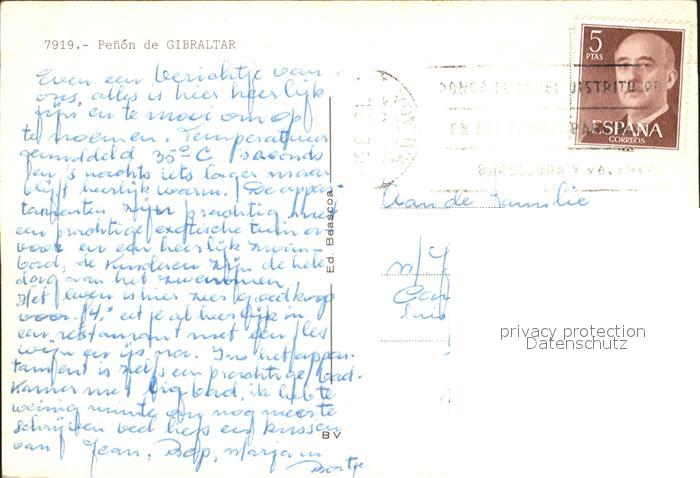 7919.- Peñón de GIBRALTAR
Even een berichtje van
ons, alles is hier heerlijk
fijn en te mooi om op
te noemen. Temperatuur
gemiddeld 35° C 's avonds
en 's nachts iets lager maar
blijft heerlijk warm. De appar-
tementen zijn prachtig met
een prachtige exotische tuin er
voor en een heerlijk zwem-
bad, de kinderen zijn de hele
dag aan het zwemmen.
Het leven is hier zeer goedkoop
voor f4,- eet je al heerlijk in
een restaurant met een fles
wijn en ijs na. In het appar-
tement is zelfs een prachtige bad-
kamer met ligbad, ik heb te
weinig ruimte om nog meer te
schrijven veel liefs en kussen
van Jean, Bep, Marja en
Ed. Beascoa
BV
5
PTAS
ESPAÑA
CORREOS
DISTRITO PO
Aan de familie
privacy protection
Datenschutz